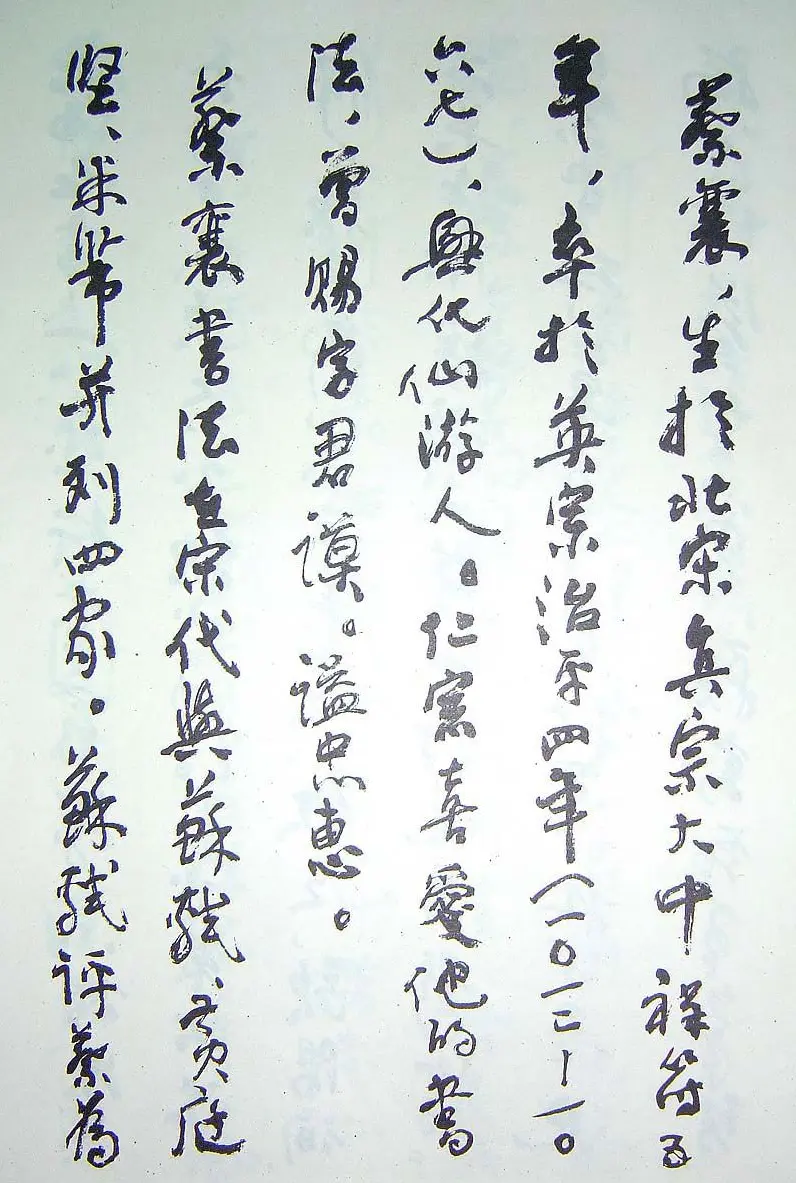 蔡襄，生於北宋真宗大中祥符五
年，卒於英宗治平四年（一〇一二—一〇
六七）、興化仙游人。仁宗喜愛他的書
法，曾賜字君謨。謚忠惠。
蔡襄書法在宋代與蘇軾、黄庭
堅、米芾并列四家。蘇軾評蔡為